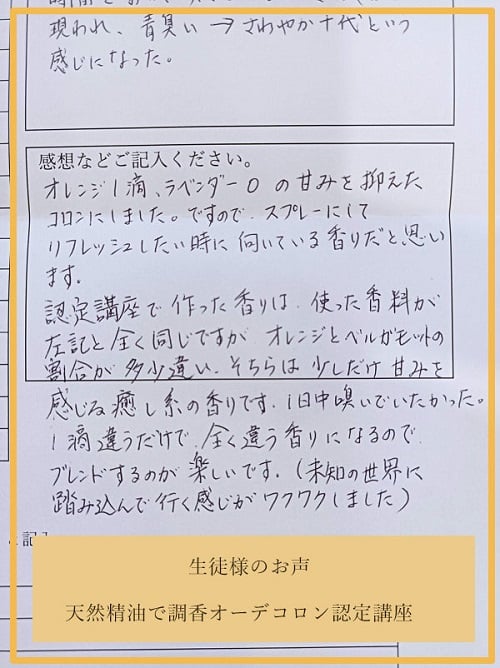 現われ、青臭い → さわやか十代という
感じになった。
感想などご記入ください。
オレンジ1滴、ラベンダー0 の甘みを抑えた
コロンにしました。ですので、スプレーにして
リフレッシュしたい時に向いている香りだと思い
ます。
認定講座で作った香りは、使った香料が
左記と全く同じですが オレンジとベルガモットの
割合が多少違い、そちらは少しだけ甘みを
感じる癒し系の香りです。1日中嗅いでいたかった。
1滴違うだけで、全く違う香りになるので
ブレンドするのが楽しいです。(未知の世界に
踏み込んで行く感じがワクワクしました)
記入
生徒様のお声
天然精油で調香オーデコロン認定講座